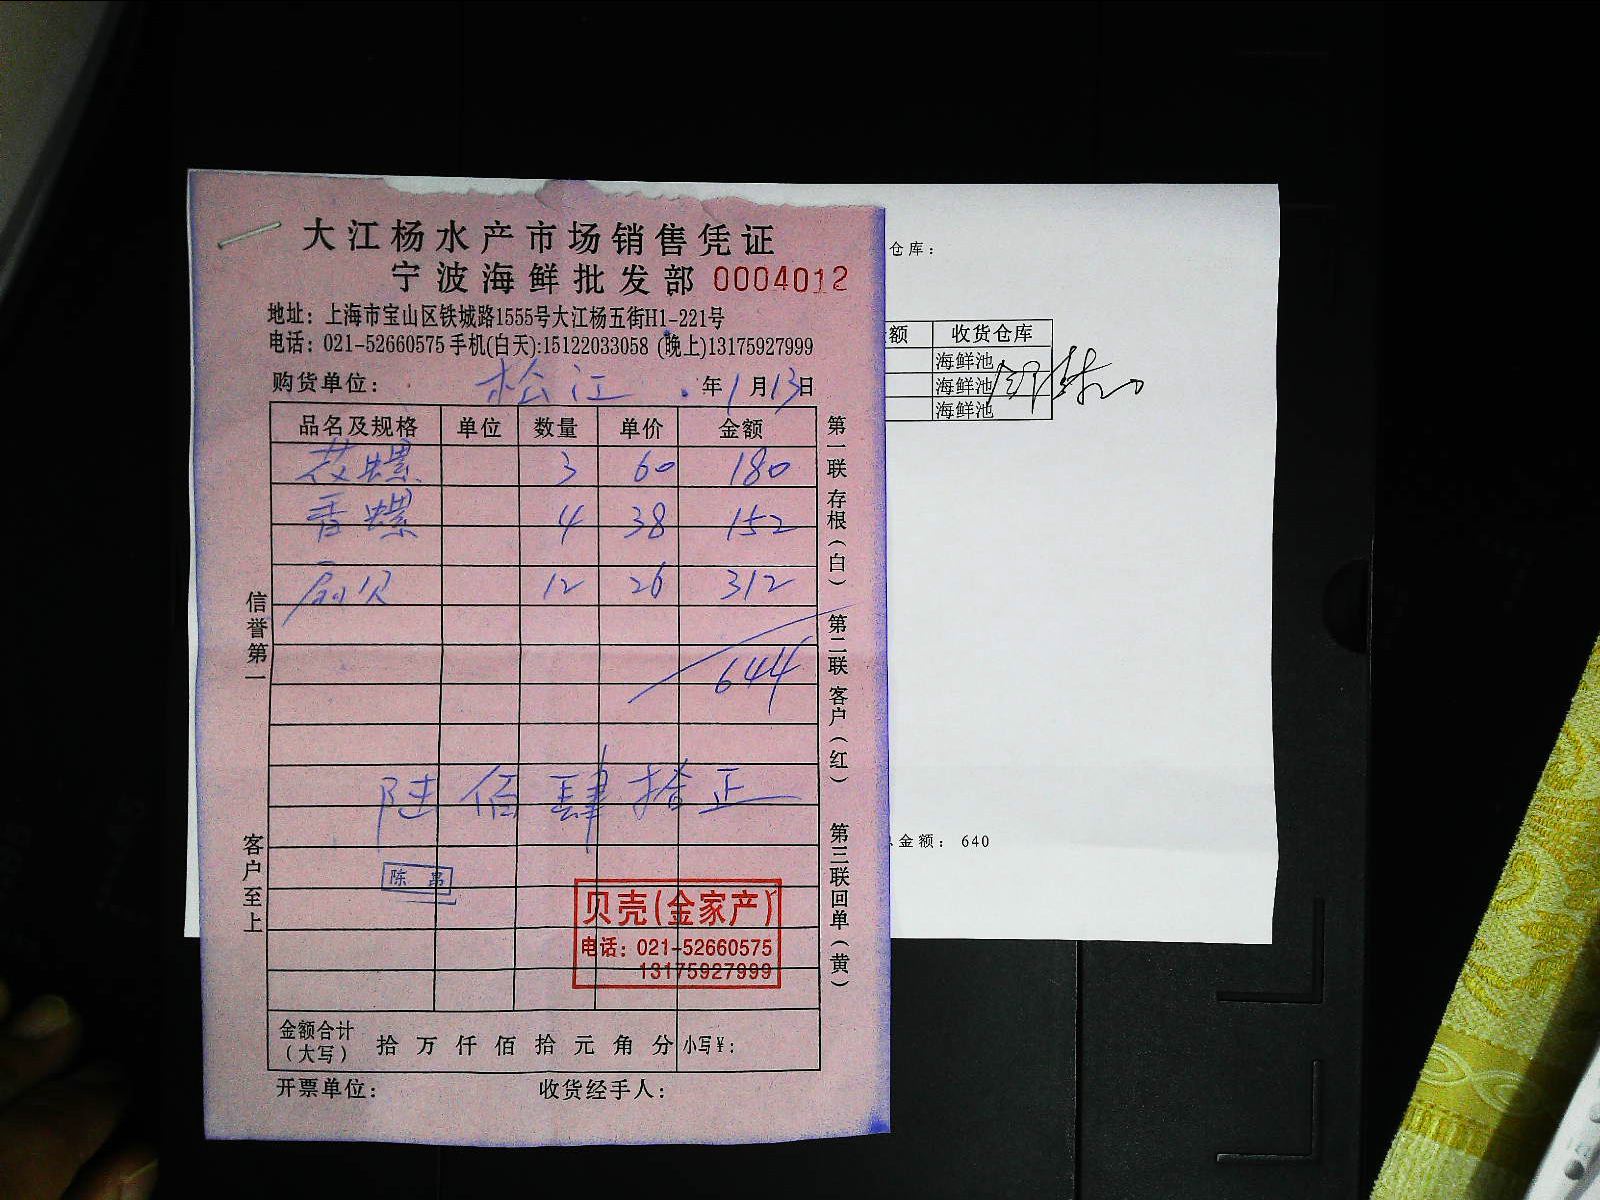 大江杨水产市场销售凭证
宁波海鲜批发部 0004012
地址：上海市宝山区铁城路1555号大江杨五街H1-221号
电话：021-52660575 手机(白天):15122033058 (晚上)13175927999
购货单位： 松江 年1月13日
品名及规格 单位 数量 单价 金额
花螺 3 60 180
香螺 4 38 152
扇贝 12 26 312
644
陆佰肆拾正
陈
贝壳(金家产)
电话：021-52660575
13175927999
金额合计（大写） 拾 万 仟 佰 拾 元 角 分 小写¥：
开票单位： 收货经手人：
信誉第一
客户至上
第一联 存根（白）
第二联 客户（红）
第三联 回单（黄）
仓库：
额 收货仓库
海鲜池
海鲜池
海鲜池
金额：640